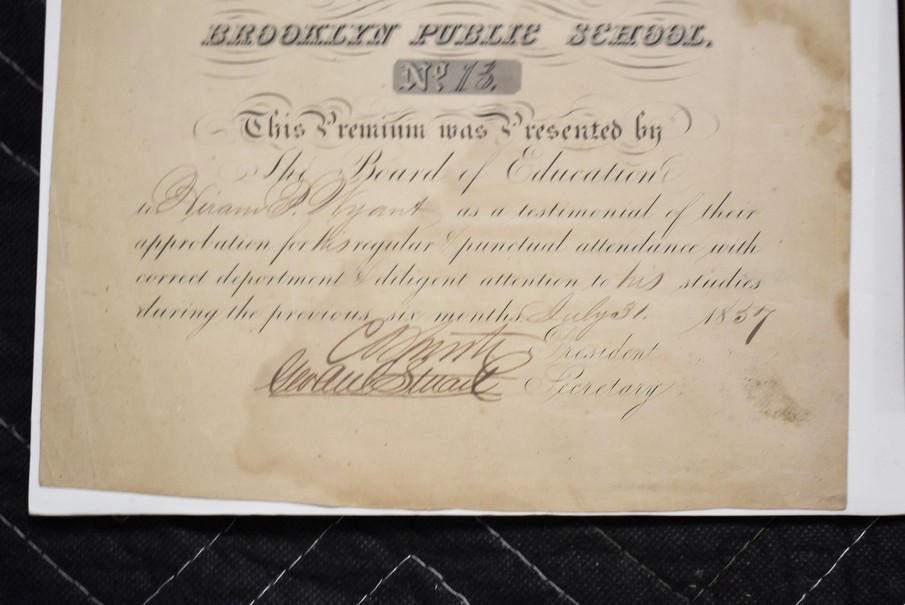 BROOKLYN PUBLIC SCHOOL,
No. 13.
This Premium was Presented by
The Board of Education
to Hiram P. Wyant as a testimonial of their
approbation for his regular & punctual attendance with
correct deportment & diligent attention to his studies
during the previous six months. July 31. 1857
President
Stuart Secretary